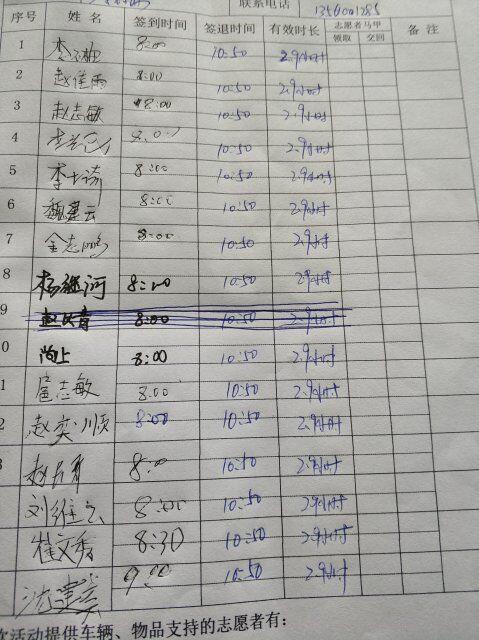 联系电话
序号 姓名 签到时间 签退时间 有效时长 志愿者马甲 备注
领取 交回
1 8:00 10:50 2.9小时
2 赵佳雨 8:00 10:50 2.9小时
3 赵志敏 8:00 10:50 2.9小时
4 8:00 10:50 2.9小时
5 李士涛 8:00 10:50 2.9小时
6 魏建云 8:00 10:50 2.9小时
7 金志鹏 8:00 10:50 2.9小时
8 杨继河 8:00 10:50 2.9小时
9 8:00 10:50 2.9小时
0 尚上 8:00 10:50 2.9小时
1 扈志敏 8:00 10:50 2.9小时
2 赵奕顺 8:00 10:50 2.9小时
8:00 10:50 2.9小时
刘继云 8:00 10:50 2.9小时
崔文秀 8:30 10:50 2.9小时
9:00 10:50 2.9小时
次活动提供车辆、物品支持的志愿者有: